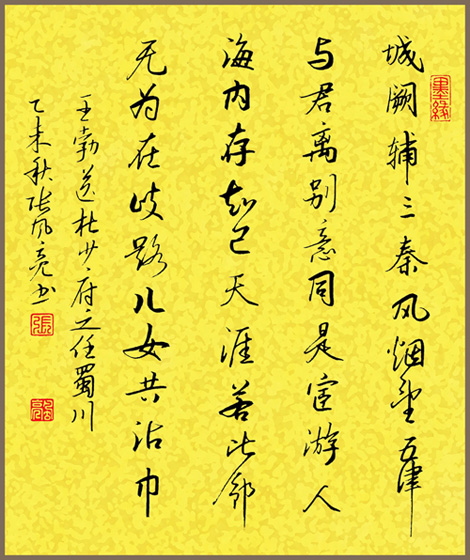 墨緣
城阙辅三秦风烟望五津
与君离别意同是宦游人
海内存知己天涯若比邻
无为在歧路儿女共沾巾
王勃送杜少府之任蜀川
乙未秋张风亮书
張